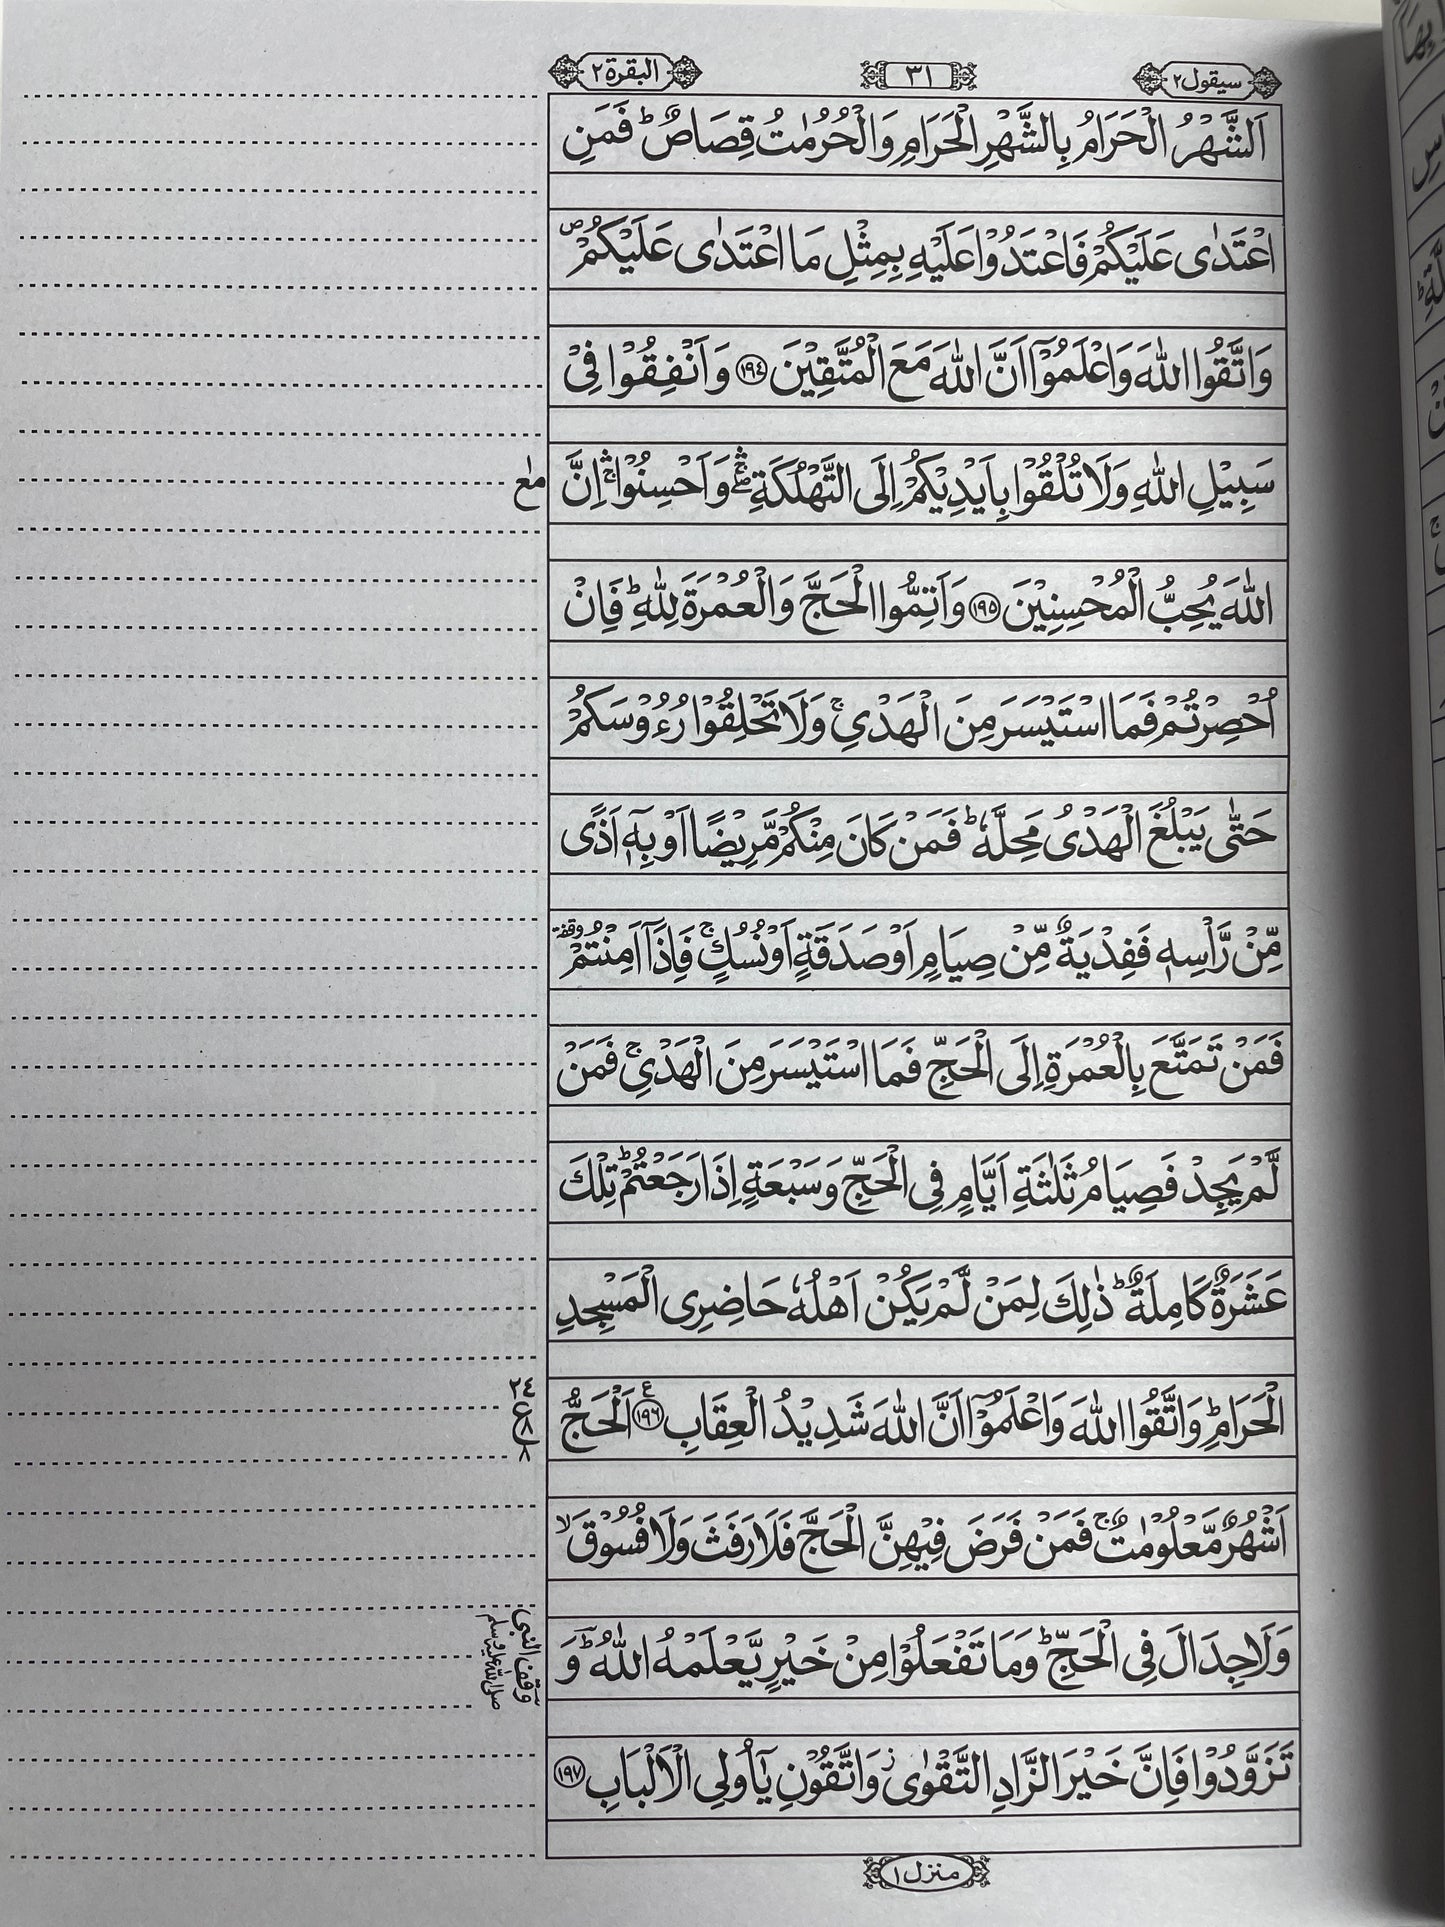 سیقول ٢
٣١
البقرة ٢
اَلشَّهْرُ الْحَرَامُ بِالشَّهْرِ الْحَرَامِ وَالْحُرُمٰتُ قِصَاصٌ ؕ فَمَنِ
اعْتَدٰى عَلَيْكُمْ فَاعْتَدُوْا عَلَيْهِ بِمِثْلِ مَا اعْتَدٰى عَلَيْكُمْ ۪
وَاتَّقُوا اللّٰهَ وَاعْلَمُوْۤا اَنَّ اللّٰهَ مَعَ الْمُتَّقِيْنَ ﴿١٩٤﴾ وَاَنْفِقُوْا فِيْ
سَبِيْلِ اللّٰهِ وَلَا تُلْقُوْا بِاَيْدِيْكُمْ اِلَى التَّهْلُكَةِ ۛۖۚ وَاَحْسِنُوْا ۛۚ اِنَّ
مع
اللّٰهَ يُحِبُّ الْمُحْسِنِيْنَ ﴿١٩٥﴾ وَاَتِمُّوا الْحَجَّ وَالْعُمْرَةَ لِلّٰهِ ؕ فَاِنْ
اُحْصِرْتُمْ فَمَا اسْتَيْسَرَ مِنَ الْهَدْيِ ۚ وَلَا تَحْلِقُوْا رُءُوْسَكُمْ
حَتّٰى يَبْلُغَ الْهَدْيُ مَحِلَّهٗ ؕ فَمَنْ كَانَ مِنْكُمْ مَّرِيْضًا اَوْ بِهٖۤ اَذًى
مِّنْ رَّاْسِهٖ فَفِدْيَةٌ مِّنْ صِيَامٍ اَوْ صَدَقَةٍ اَوْ نُسُكٍ ۚ فَاِذَاۤ اَمِنْتُمْ وقفة
فَمَنْ تَمَتَّعَ بِالْعُمْرَةِ اِلَى الْحَجِّ فَمَا اسْتَيْسَرَ مِنَ الْهَدْيِ ۚ فَمَنْ
لَّمْ يَجِدْ فَصِيَامُ ثَلٰثَةِ اَيَّامٍ فِى الْحَجِّ وَسَبْعَةٍ اِذَا رَجَعْتُمْ ؕ تِلْكَ
عَشَرَةٌ كَامِلَةٌ ؕ ذٰلِكَ لِمَنْ لَّمْ يَكُنْ اَهْلُهٗ حَاضِرِى الْمَسْجِدِ
الْحَرَامِ ؕ وَاتَّقُوا اللّٰهَ وَاعْلَمُوْۤا اَنَّ اللّٰهَ شَدِيْدُ الْعِقَابِ ﴿١٩٦﴾ ع اَلْحَجُّ
٢٤
ع ٨
٨
اَشْهُرٌ مَّعْلُوْمٰتٌ ۚ فَمَنْ فَرَضَ فِيْهِنَّ الْحَجَّ فَلَا رَفَثَ وَلَا فُسُوْقَ ۙ
وَلَا جِدَالَ فِى الْحَجِّ ؕ وَمَا تَفْعَلُوْا مِنْ خَيْرٍ يَّعْلَمْهُ اللّٰهُ ؕؔ وَ
وقف النبی
صلی اللہ علیہ وسلم
تَزَوَّدُوْا فَاِنَّ خَيْرَ الزَّادِ التَّقْوٰى ۡ وَاتَّقُوْنِ يٰۤاُولِى الْاَلْبَابِ ﴿١٩٧﴾
منزل ١